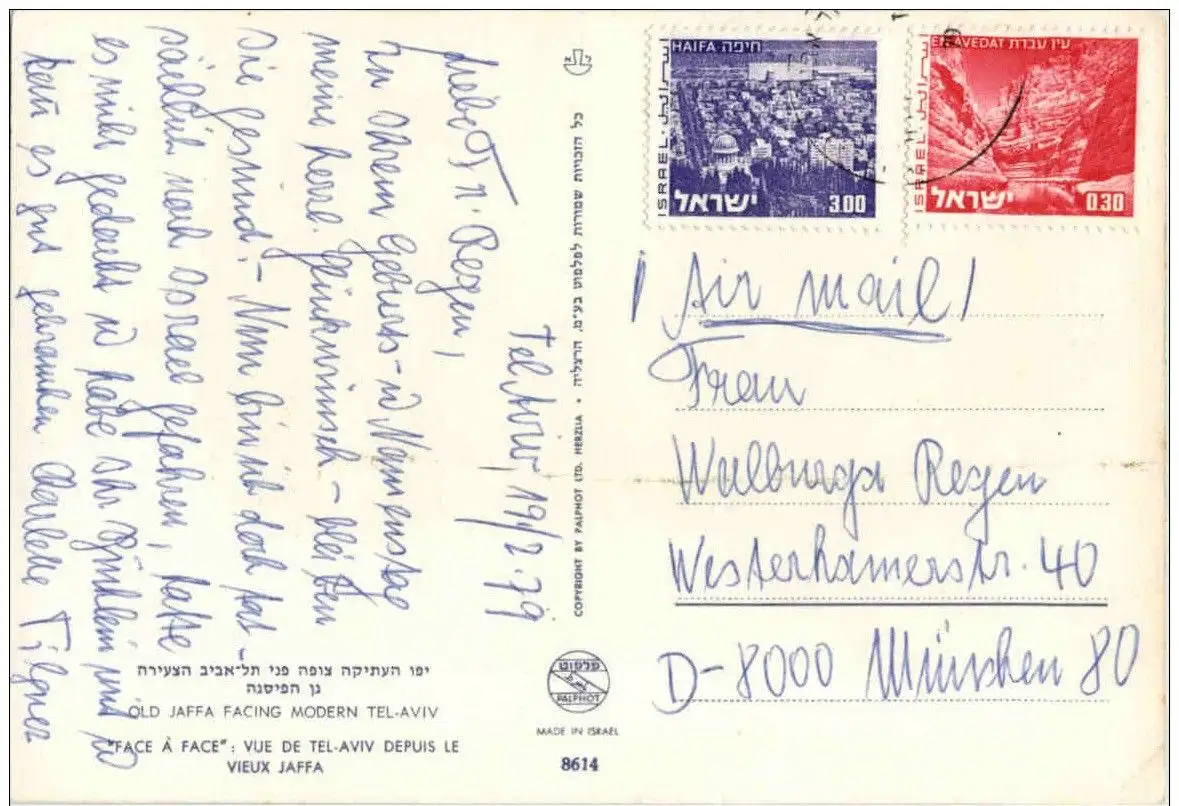 Tel Aviv, 19/2.79
Liebe Fr. Regen,
zu Ihrem Geburts- u Namenstag
meine herzl. Glückwünsche - bleiben
Sie gesund. - Nun bin ich doch tat
sächlich nach Israel gefahren, habe
es nicht gedacht u habe Ihr Büchlein mit u
kann es gut gebrauchen. Tilgner
HAIFA חיפה
ISRAEL
ישראל
3.00
EN AVEDAT עין עבדת
ISRAEL
ישראל
0.30
! Air mail !
Frau
Walburga Regen
Westerhamerstr. 40
D-8000 München 80
כל הזכויות שמורות לפלפוט בע"מ. הרצליה
COPYRIGHT BY PALPHOT LTD. HERZLIA
פלפוט
PALPHOT
MADE IN ISRAEL
8614
יפו העתיקה צופה פני תל־אביב הצעירה
גן הפיסגה
OLD JAFFA FACING MODERN TEL-AVIV
"FACE À FACE": VUE DE TEL-AVIV DEPUIS LE
VIEUX JAFFA